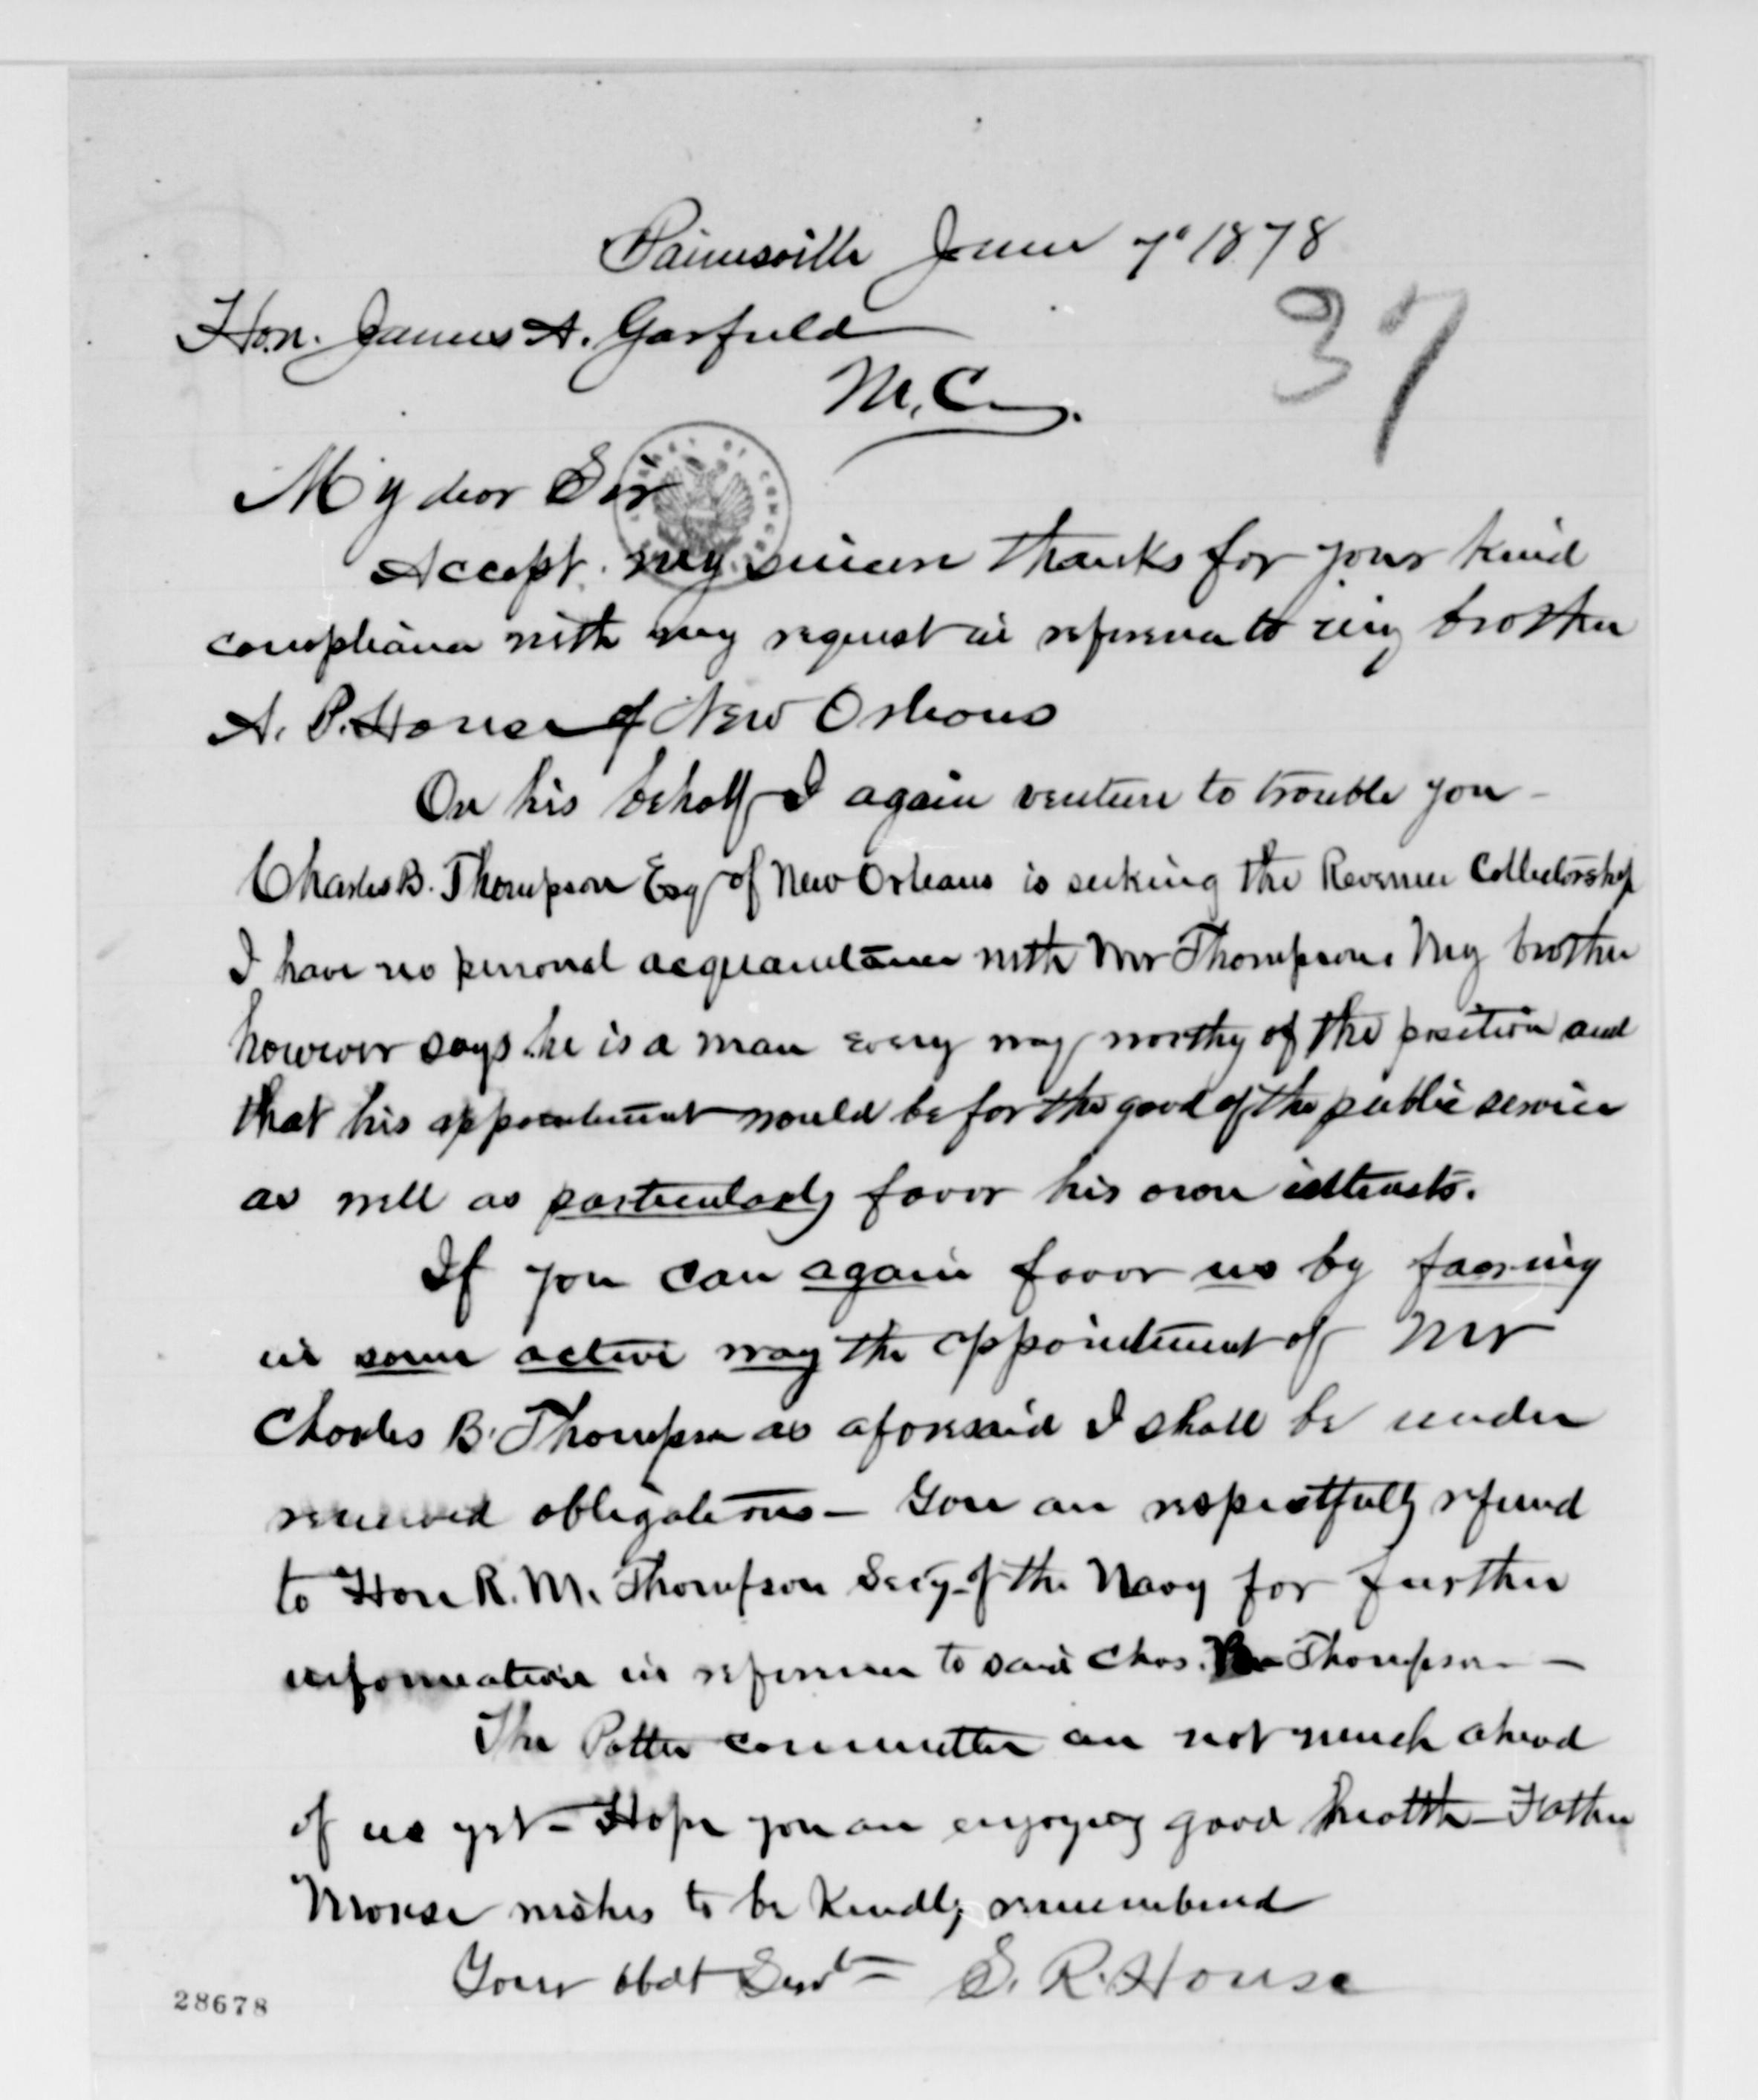 Painesville June 7" 1878
Hon. James A. Garfield
37
M. C.
My dear Sir
Accept my sincere thanks for your kind
compliance with my request in reference to my brother
A. P. House of New Orleans
On his behalf I again venture to trouble you -
Charles B. Thompson Esq of New Orleans is seeking the Revenue Collectorship
I have no personal acquaintance with Mr Thompson. My brother
however says he is a man every way worthy of the position and
that his appointment would be for the good of the public service
as well as particularly favor his own interests.
If you can again favor us by favoring
in some active way the appointment of Mr
Charles B. Thompson as aforesaid I shall be under
renewed obligations - You are respectfully referred
to Hon R. M. Thompson Secy of the Navy for further
information in reference to said Chas. Thompson -
The Potter committee are not much ahead
of us yet - Hope you are enjoying good health - Father
Morse wishes to be kindly remembered
Your obdt Servt - S. R. House
28678